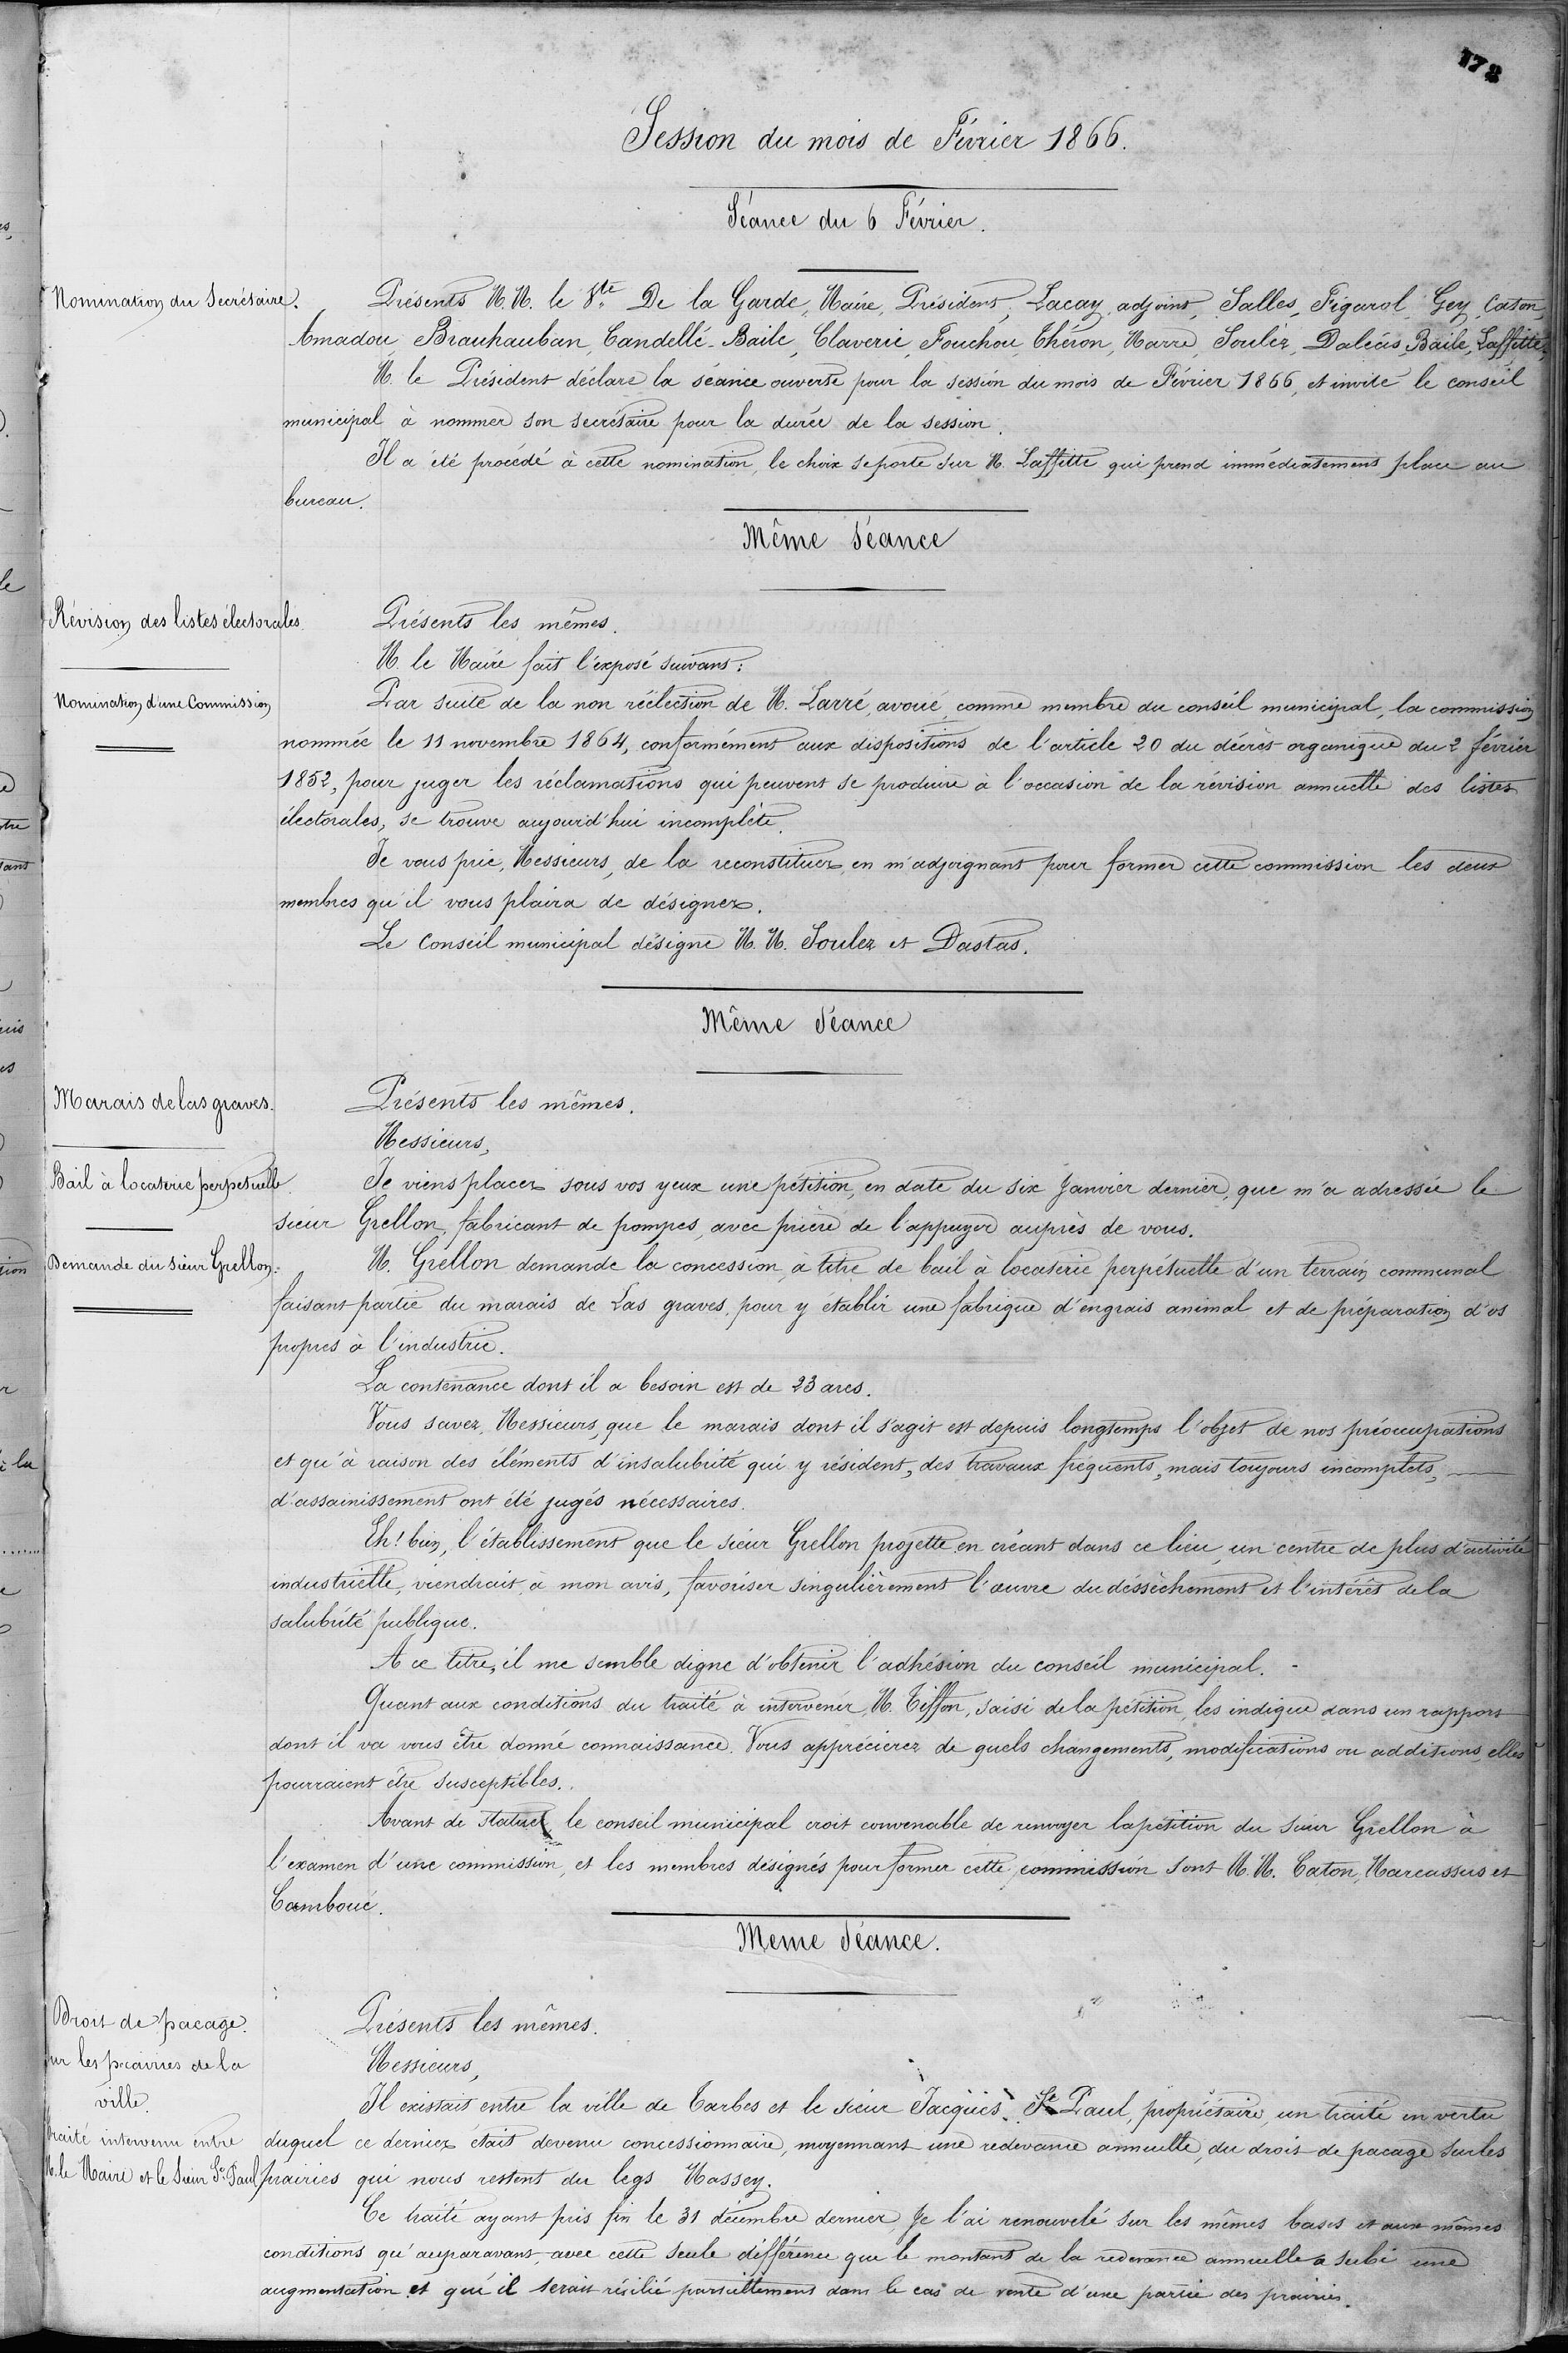 172
Session du mois de Février 1866.
Séance du 6 Février.
Nomination du Secrétaire.
Présents M.M. le Vte De la Garde, Maire, Président, Lacay, adjoint, Salles, Figarol, Gey, Caton,
Amadou, Brauhauban, Candellé-Baile, Claverie, Fouchou, Théron, Marre, Soulez, Daléas, Baile, Laffitte.
M. le Président déclare la séance ouverte pour la session du mois de Février 1866, et invite le conseil
municipal à nommer son secrétaire pour la durée de la session.
Il a été procédé à cette nomination, le choix se porte sur M. Laffitte qui prend immédiatement place au
bureau.
Même Séance
Révision des listes électorales.
Nomination d'une Commission
Présents les mêmes.
M. le Maire fait l'exposé suivant :
Par suite de la non réélection de M. Larré, avoué, comme membre du conseil municipal, la commission
nommée le 11 novembre 1864, conformément aux dispositions de l'article 20 du décret organique du 2 février
1852, pour juger les réclamations qui peuvent se produire à l'occasion de la révision annuelle des listes
électorales, se trouve aujourd'hui incomplète.
Je vous prie, Messieurs, de la reconstituer, en m'adjoignant pour former cette commission les deux
membres qu'il vous plaira de désigner.
Le Conseil municipal désigne M.M. Soulez et Dastas.
Même Séance
Marais de las graves.
Bail à locaterie perpetuelle.
Demande du Sieur Grellon.
Présents les mêmes.
Messieurs,
Je viens placer sous vos yeux une pétition, en date du six Janvier dernier, que m'a adressée le
sieur Grellon, fabricant de pompes, avec prière de l'appuyer auprès de vous.
M. Grellon demande la concession, à titre de bail à locaterie perpétuelle d'un terrain communal
faisant partie du marais de Las graves, pour y établir une fabrique d'engrais animal et de préparation d'os
propres à l'industrie.
La contenance dont il a besoin est de 23 ares.
Vous savez, Messieurs, que le marais dont il s'agit est depuis longtemps l'objet de nos préoccupations
et qu'à raison des éléments d'insalubrité qui y résident, des travaux fréquents, mais toujours incomplets,
d'assainissement ont été jugés nécessaires.
Eh! bien, l'établissement que le sieur Grellon projette, en créant dans ce lieu, un centre de plus d'activité
industrielle, viendrait, à mon avis, favoriser singulièrement l'œuvre du déssèchement et l'intérêt de la
salubrité publique.
A ce titre, il me semble digne d'obtenir l'adhésion du conseil municipal.
Quant aux conditions du traité à intervenir, M. Tiffon, saisi de la pétition, les indique dans un rapport
dont il va vous être donné connaissance. Vous apprécierez de quels changements, modifications ou additions, elles
pourraient être susceptibles.
Avant de statuer, le conseil municipal croit convenable de renvoyer la pétition du sieur Grellon à
l'examen d'une commission, et les membres désignés pour former cette commission sont M.M. Caton, Marcassus et
Camboué.
Meme Séance.
Droit de pacage
sur les prairies de la
ville.
traité intervenu entre
M. le Maire et le Sieur St Paul
Présents les mêmes.
Messieurs,
Il existait entre la ville de Tarbes et le sieur Jacques St Paul, propriétaire, un traité en vertu
duquel ce dernier était devenu concessionnaire, moyennant une redevance annuelle, du droit de pacage sur les
prairies qui nous restent du legs Massey.
Ce traité ayant pris fin le 31 décembre dernier, je l'ai renouvelé sur les mêmes bases et aux mêmes
conditions qu'auparavant, avec cette seule différence que le montant de la redevance annuelle a subi une
augmentation et qu'il serait résilié partiellement dans le cas de vente d'une partie des prairies.